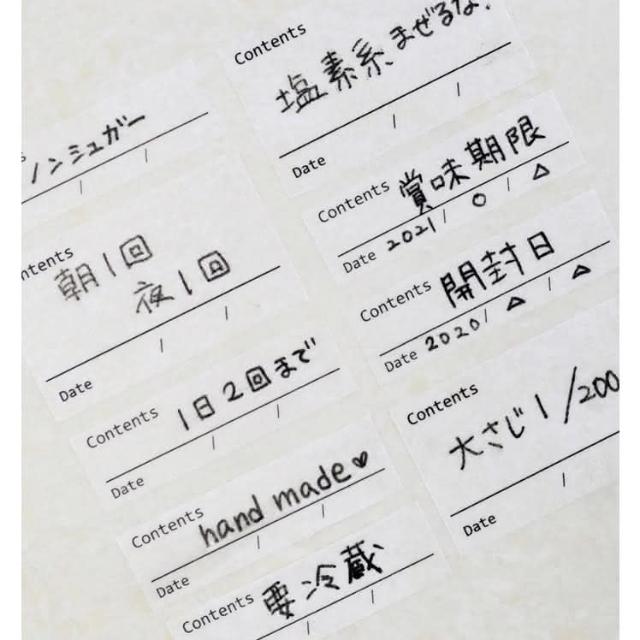 ノンシュガー
/ /
ntents
朝1回
夜1回
/ /
Date
Contents
1日2回まで
/ /
Date
Contents
hand made♥
/ /
Date
Contents
要冷蔵
/ /
Contents
塩素系まぜるな.
/ /
Date
Contents
賞味期限
Date 2021/ ○ / △
Contents
開封日
Date 2020/ △ / △
Contents
大さじ1/200
/
Date